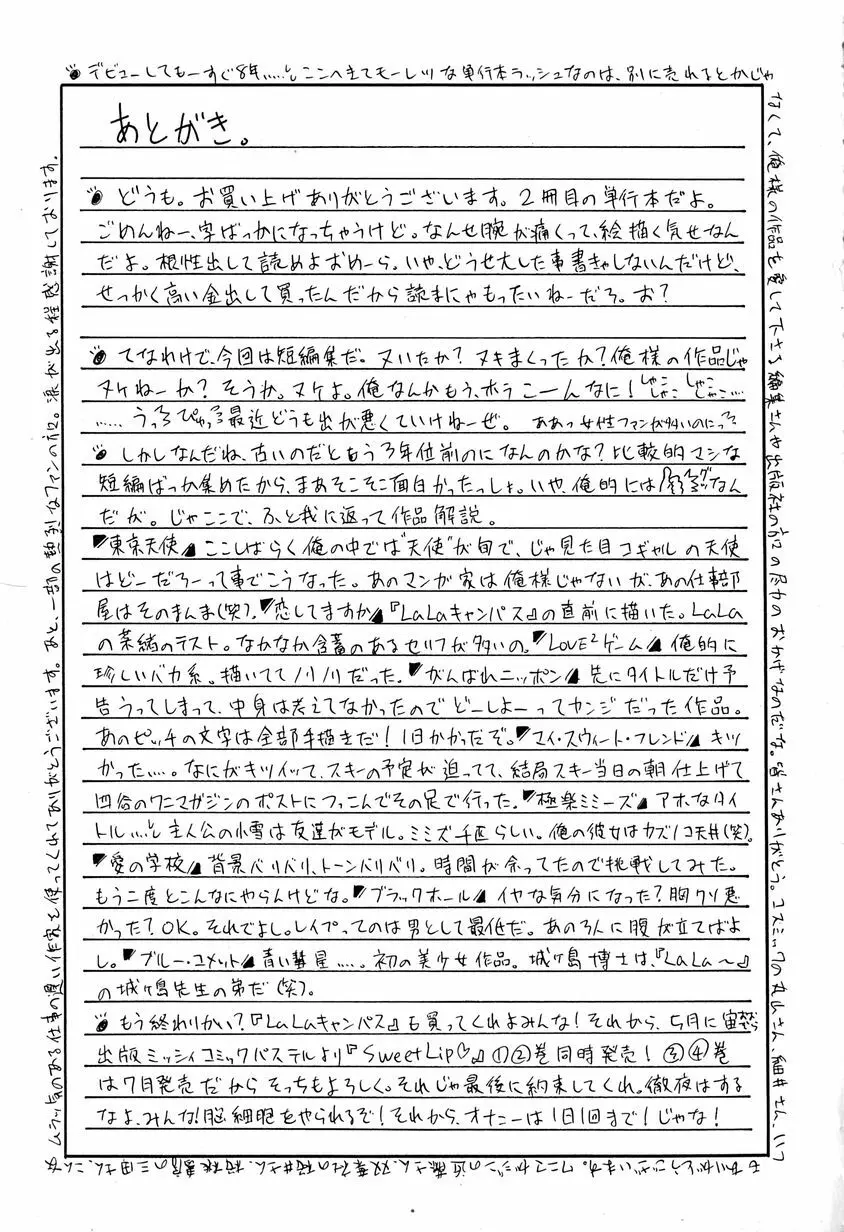 デビューしてもーすぐ8年……。ここへきてモーレツな単行本ラッシュなのは、別に売れるとかじゃ
なくて、俺様の作品を愛して下さる編集さんや出版社の方の尽力のおかげなのだな。皆さんありがとう。コスミックの丸山さん、細井さん、いつ
もありがとうございます。ワニマガジンの近藤さん、双葉社の桜井さん、桜桃書房の三田さん、こんな
ムラッ気のある仕事の遅い作家を使ってくれてありがとうございます。あと、一部の熱烈なファンの方々。涙が出る程感謝しております。
あとがき。
どうも。お買い上げありがとうございます。2冊目の単行本だよ。
ごめんねー、字ばっかになっちゃうけど。なんせ腕が痛くって、絵描く気せなん
だよ。根性出して読めよおめーら。いや、どうせ大した事書きゃしないんだけど、
せっかく高い金出して買ったんだから読まにゃもったいねーだろ。お?
てなわけで、今回は短編集だ。ヌいたか?ヌキまくったか?俺様の作品じゃ
ヌケねーか?そうか。ヌケよ。俺なんかもう、ホラこーんなに!しゃこしゃこしゃこしゃこ…
……うっろぴゅっろ最近どうも出が悪くていけねーぜ。ああっ女性ファンが多いのにっ
しかしなんだね、古いのだともう3年位前のになんのかな?比較的マシな
短編ばっか集めたから、まあそこそこ面白かったっしょ。いや、俺的には なん
だが。じゃここで、ふと我に返って作品解説。
東京天使 ここしばらく俺の中では"天使"が旬で、じゃ見た目コギャルの天使
はどーだろーって事でこうなった。あのマンガ家は俺様じゃないが、あの仕事部
屋はそのまんま(笑)。恋してますか『LaLaキャンパス』の直前に描いた。LaLa
の菜緒のテスト。なかなか含蓄のあるセリフが多いの。LOVE²ゲーム 俺的に
珍しいバカ系。描いててノリノリだった。がんばれニッポン 先にタイトルだけ予
告うってしまって、中身は考えてなかったのでどーしよーってカンジだった作品。
あのピッチの文字は全部手描きだ!1日かかったぞ。マイ・スウィート・フレンド キツ
かった…。なにがキツイッて、スキーの予定が迫ってて、結局スキー当日の朝仕上げて
四谷のワニマガジンのポストにつっこんでその足で行った。極楽ミミーズ アホなタイ
トル…。主人公の小雪は友達がモデル。ミミズ千匹らしい。俺の彼女はカズノコ天井(笑)。
愛の学校 背景バリバリ、トーンバリバリ。時間が余ってたので挑戦してみた。
もう二度とこんなにやらんけどな。ブラックホール イヤな気分になった?胸クソ悪
かった?OK。それでよし。レイプってのは男として最低だ。あの3人に腹が立てばよ
し。ブルー・コメット 青い彗星……。初の美少女作品。城ヶ島博士は、『LaLa〜』
の城ヶ島先生の弟だ(笑)。
もう終わりかい?『LaLaキャンパス』も買ってくれよみんな!それから、5月に宙
出版ミッシィコミックパステルより『SweetLip♡』①②巻同時発売!③④巻
は7月発売だからそっちもよろしく。それじゃ最後に約束してくれ。徹夜はする
なよ、みんな!脳細胞をやられるぞ!それから、オナニーは1日1回まで!じゃな!